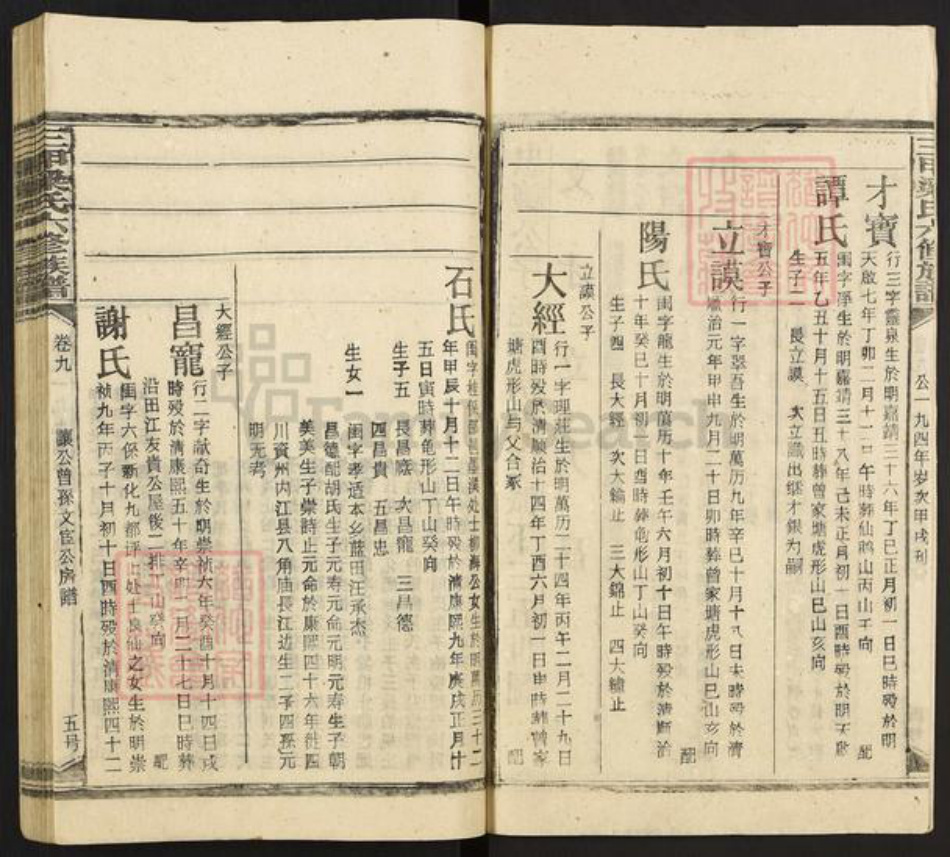 三甲梁氏六修族譜
公一九四年岁次甲戌刊
才寶
行三字靈泉生於明嘉靖三十六年丁巳正月初一日巳時殁於明
天啟七年丁卯二月十一日午時葬仙鵝山丙山壬向
配
譚氏
閨字淨生於明嘉靖三十八年己未正月初一日酉時殁於明天啟
五年乙丑十月十五日丑時葬曾家塘虎形山巳山亥向
生子二 長立謨 次立識出继才銀为嗣
才寶公子
立謨
行一字翠吾生於明萬历九年辛巳十月十八日未時殁於清
順治元年甲申九月二十日卯時葬曾家塘虎形山巳山亥向
配
陽氏
閨字龍生於明萬历十年壬午六月初十日午時殁於清順治
十年癸巳十月初一日酉時葬龟形山丁山癸向
生子四 長大經 次大鑰止 三大錦止 四大繡止
立謨公子
大經
行一字理莊生於明萬历二十四年丙午二月二十九日
酉時殁於清順治十四年丁酉六月初一日申時葬曾家
塘虎形山与父合冢
配
石氏
閨字桂 处士 公女生於明萬历三十二
年甲辰十月十二日午時殁於清康熙九年庚戌正月廿
五日寅時葬龟形山丁山癸向
生子五 長昌 次昌寵 三昌德
四昌貴 五昌忠
生女一
閨字季适本乡蓝田汪承杰
昌 配胡氏生子元寿元命元明元寿生子朝
美美生子崇時止元命於康熙四十六年徙四
川資州内江县八角庙長江边生二子四孫元
明无考
大經公子
昌寵
行二字献奇生於明崇禎六年癸酉十月十四日戌
時殁於清康熙五十年辛卯 月二十七日巳時葬
沿田江友贵公屋後二排丁山癸向
配
謝氏
閨字六係新化九都坪山处士良仙之女生於明崇
禎九年丙子十月初十日酉時殁於清康熙四十二
三甲梁氏六修族譜
卷九
讓公曾孫文宦公房譜
五号